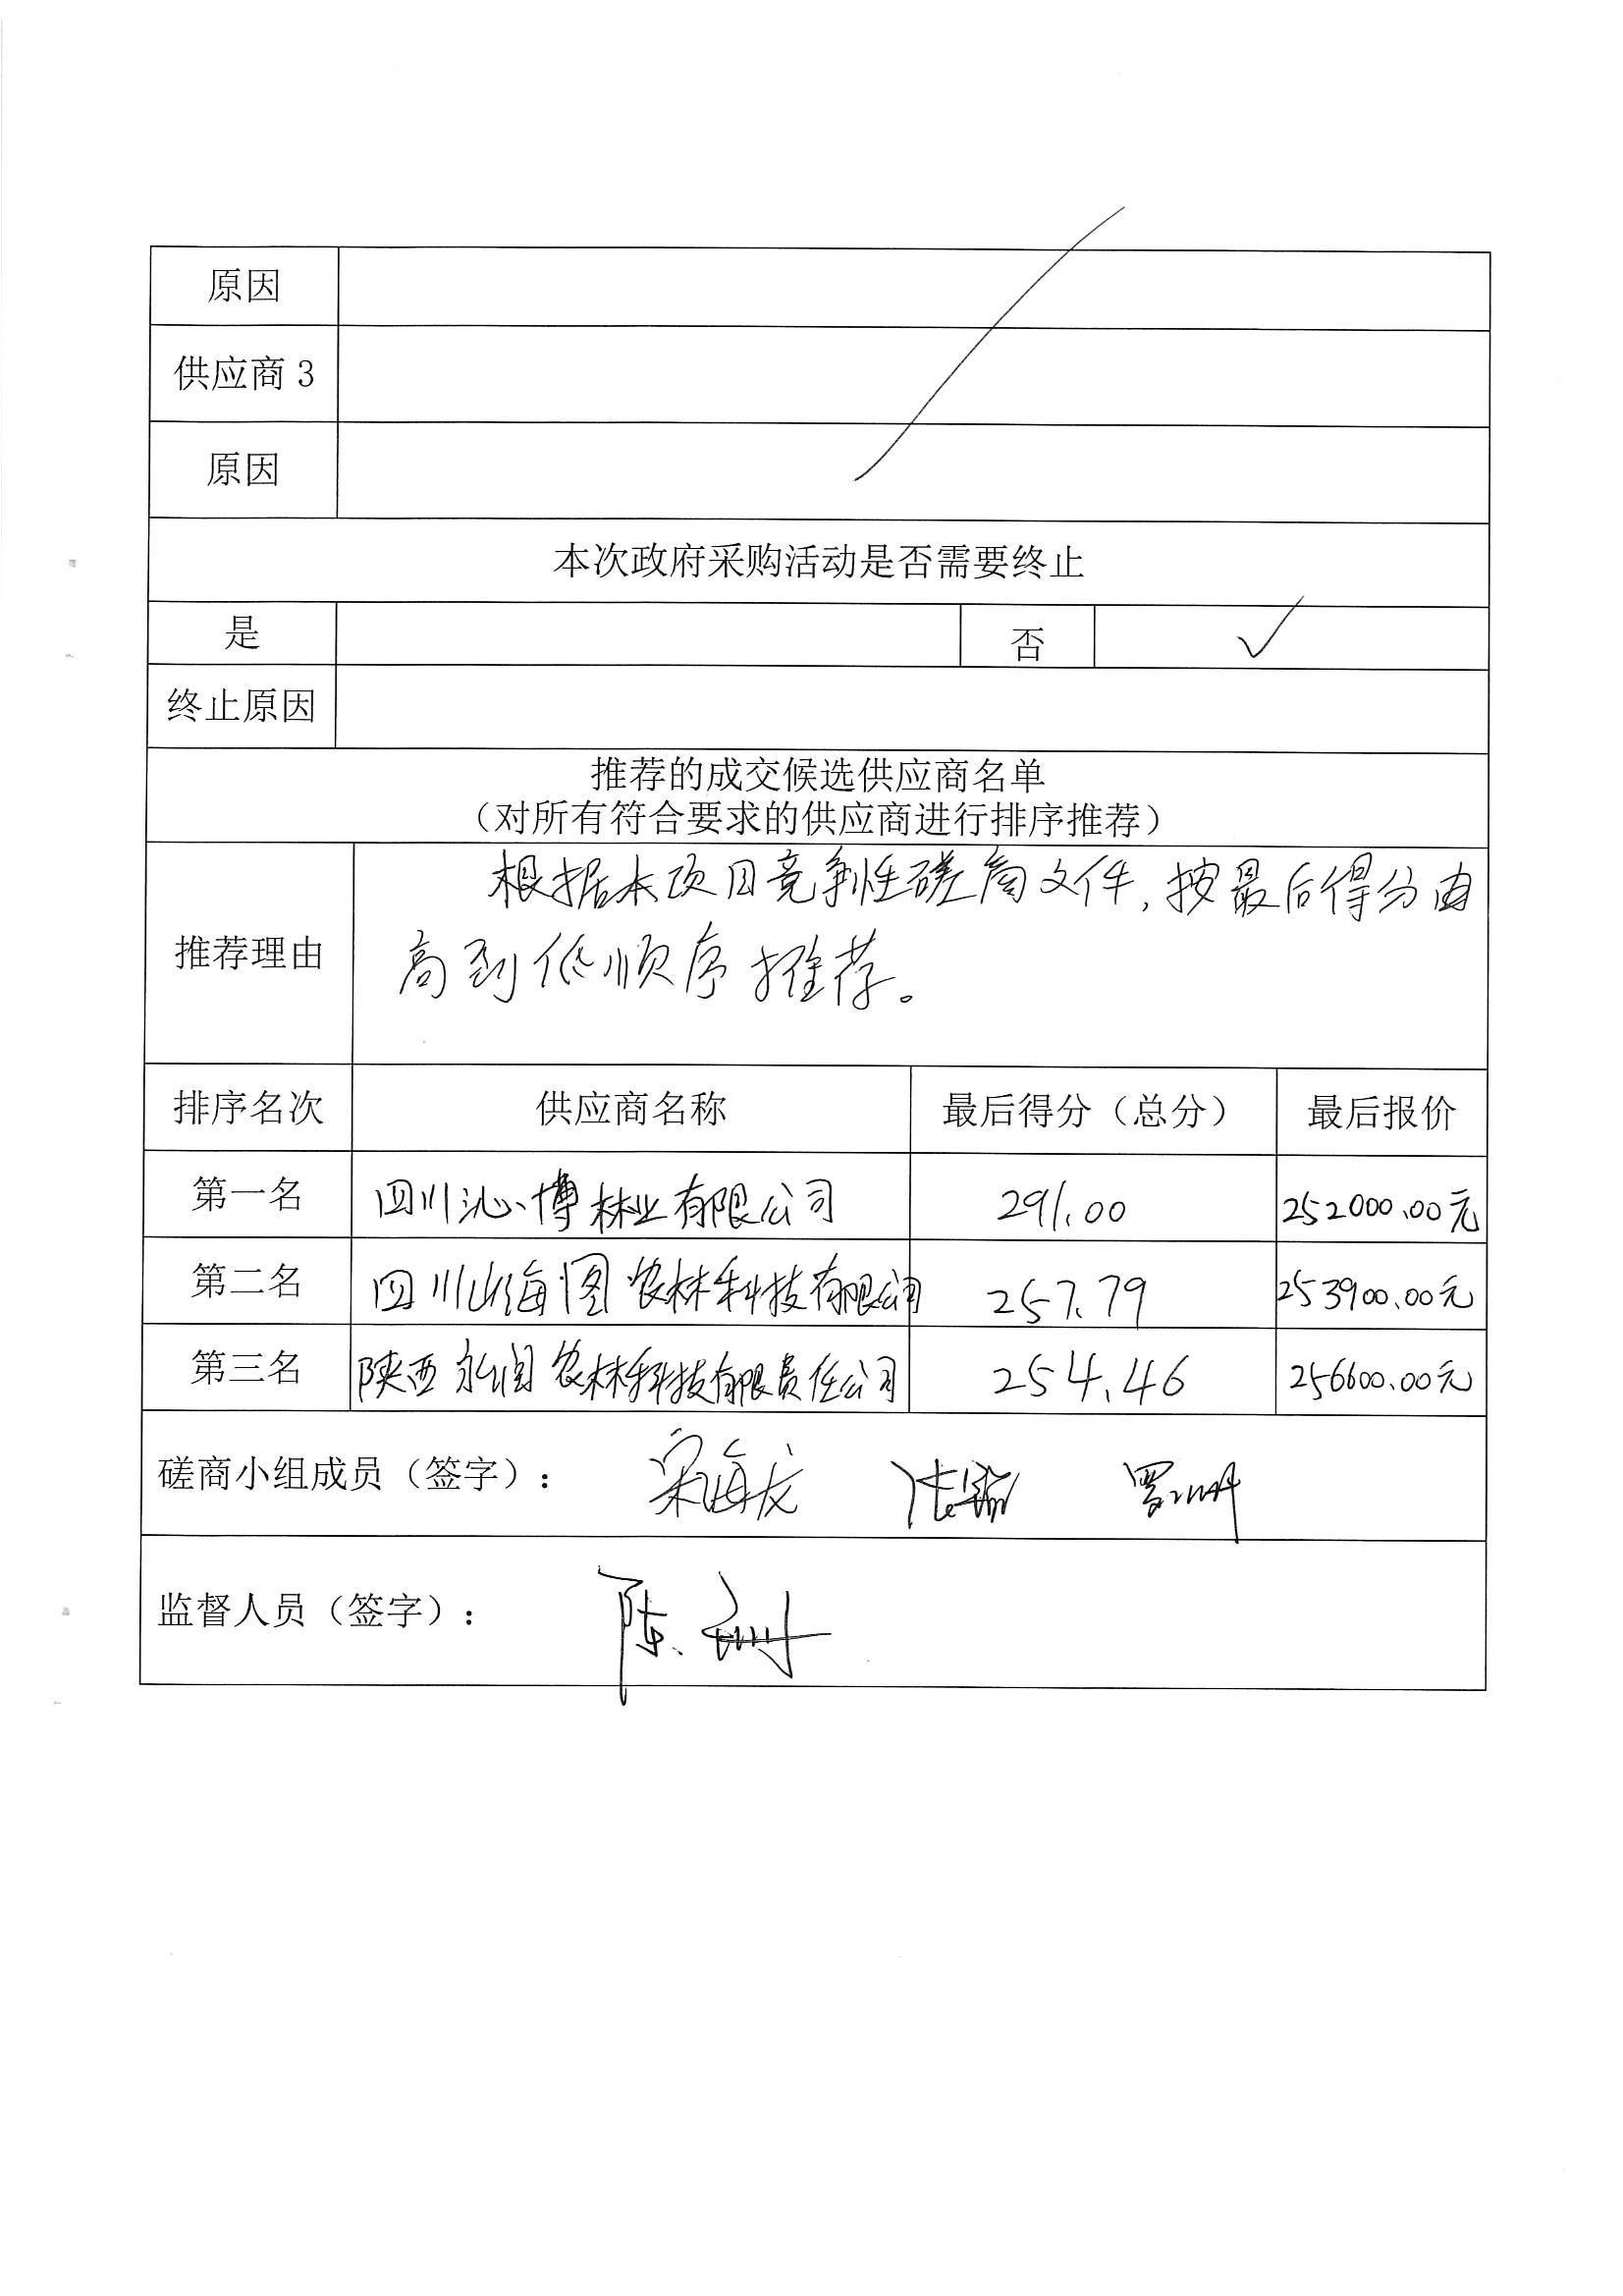 原因
供应商 3
原因
本次政府采购活动是否需要终止
是 否 √
终止原因
推荐的成交候选供应商名单
（对所有符合要求的供应商进行排序推荐）
根据本项目竞争性磋商文件，按最后得分由
推荐理由
高到低顺序推荐。
排序名次 供应商名称 最后得分（总分） 最后报价
第一名 四川沁博林业有限公司 291.00 252000.00元
第二名 四川山海图农林科技有限公司 257.79 253900.00元
第三名 陕西永润农林科技有限责任公司 254.46 256600.00元
磋商小组成员（签字）： 宋海龙
监督人员（签字）： 陈